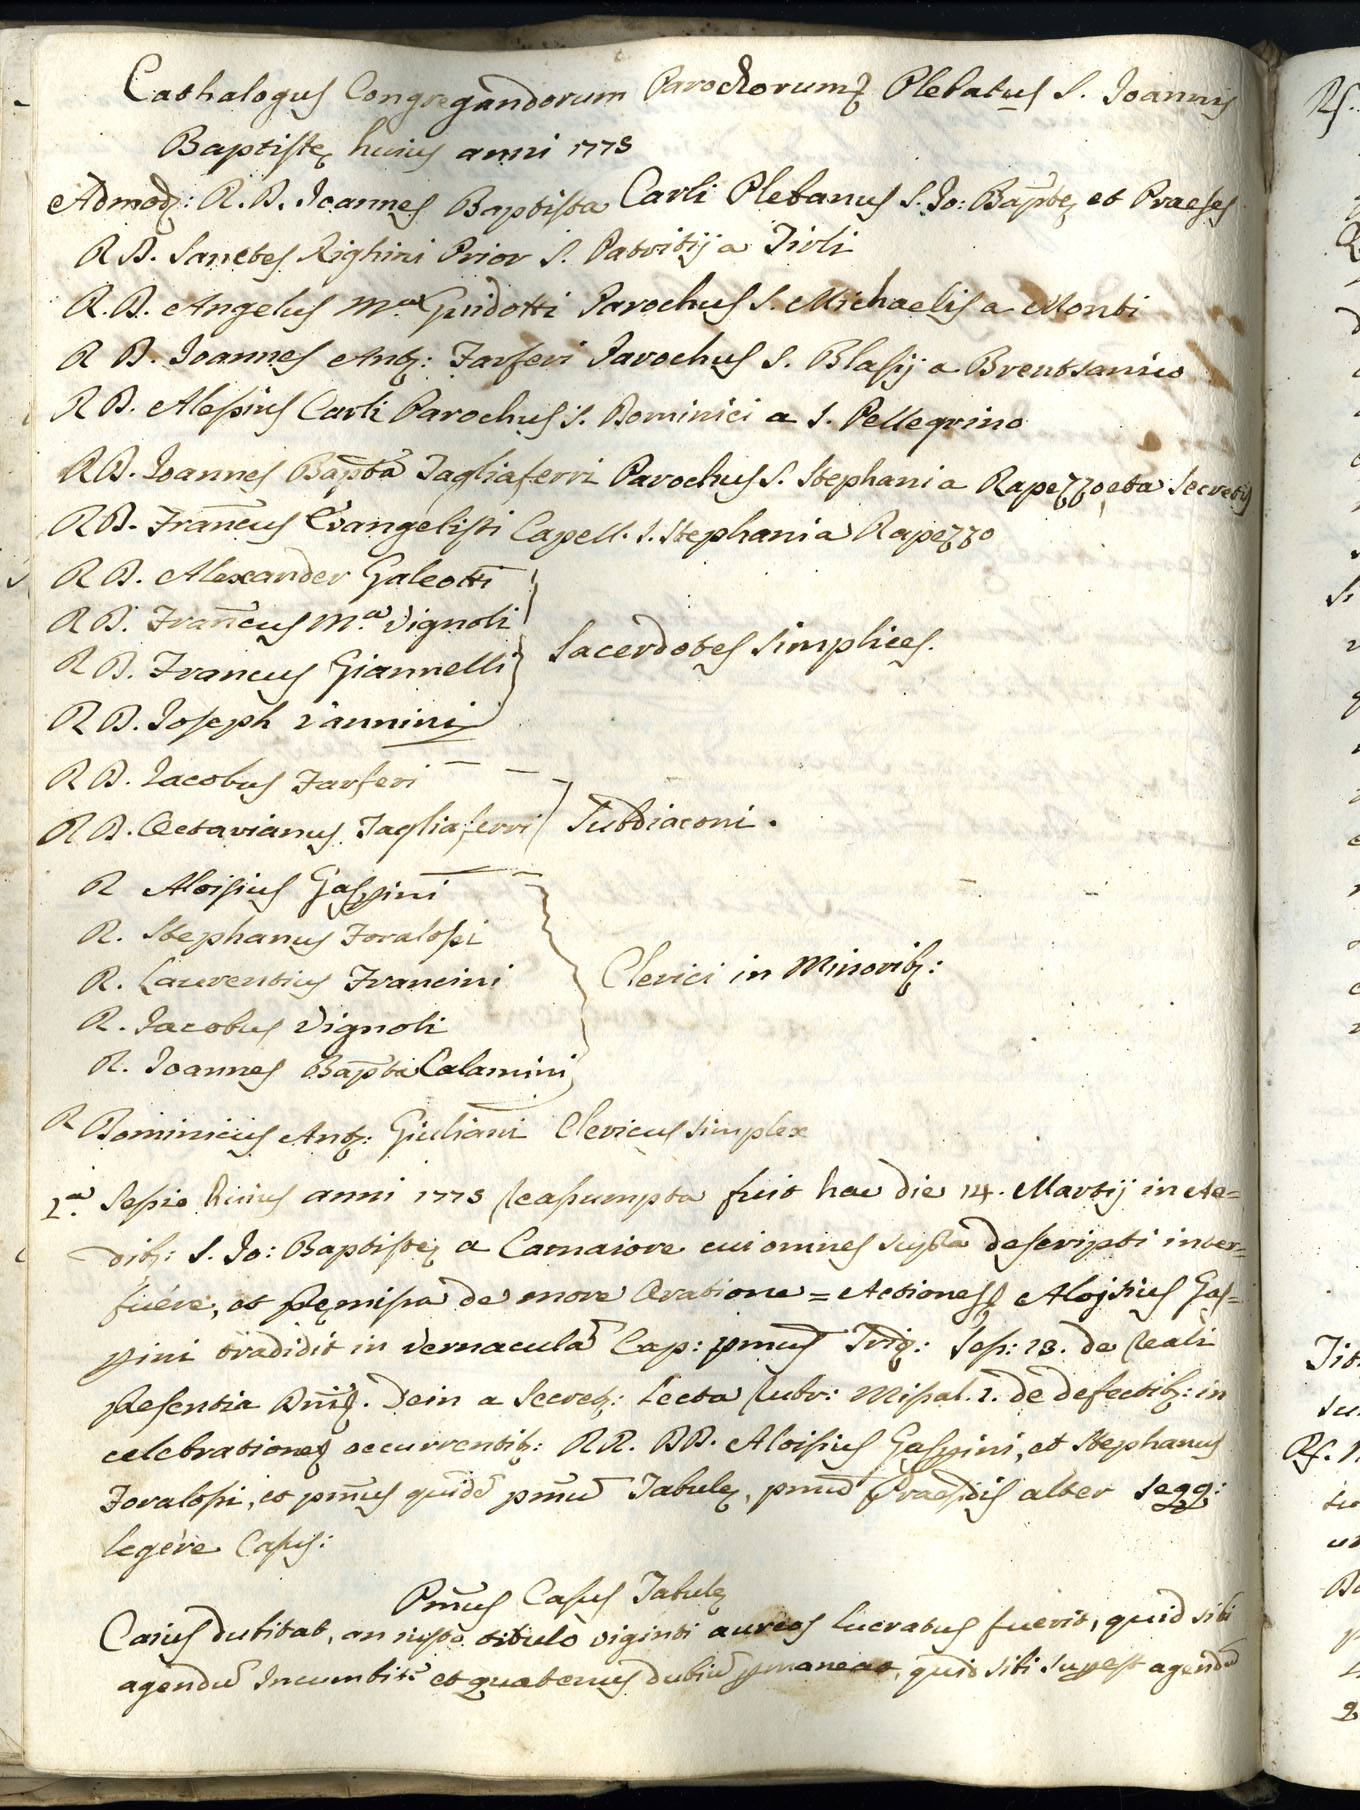 Cathalogus Congregandorum Parochorumq Plebatus S. Joannis
Baptistę huius anni 1773
Admodq: R. D. Joannes Baptista Carli Plebanus S. Jo: Bap̄tę et Praeses
R D. Sanctes Righini Prior S. Patritij a Tirli
R. D. Angelus M.a Guidotti Parochus S. Michaelis a Monti
R D. Joannes Antq: Farferi Parochus S. Blasij a Brentsanico
R D. Alessius Carli Parochus S. Dominici a S. Pellegrino
R D. Joannes Bap̄ta Tagliaferri Parochus S. Stephani a Rapezzo et a Secretis
R D. Fran̄cus Evangelisti Capell. S. Stephani a Rapezzo
R D. Alexander Galeotti
R D. Fran̄cus M.a Vignoli
R D. Francus Giannelli
R D. Joseph Vannini
Sacerdotes simplices.
R D. Jacobus Farferi
R D. Octavianus Tagliaferri
Subdiaconi.
R Aloisius Gaspini
R. Stephanus Foralossi
R. Laurentius Francini
R. Jacobus Vignoli
R. Joannes Bap̄ta Calamini
Clerici in Minoribq:
R Dominicus Antq: Giuliani Clericus simplex
1.a Sessio huius anni 1773 reassumpta fuit hac die 14. Martij in Ae=
dibq: S. Jo: Baptistę a Camaiore cui omnes sup̄a descripti inter=
fuére, et p̱ręmissa de more Oratione = Actiones Alojsius Gas=
pini tradidit in vernaculā Cap: pmus Triq: Ses: 13. de reali
p̱resentia Dn̄i. Dein a Secretq: lecta rubr: Missal. 1. de defectibq: in
celebratione occurrentibq: RR. DD. Aloisius Gaspini, et Stephanus
Foralossi, et pm̄us quidē pm̄ū Tabulę, pmūd Praesidis alter seqq:
legére Casus:
Pm̄us Casus Tabulę
Caius dubitat, an iusto titulò viginti aureos lucratus fuerit, quid sibi
agendū Incumbit? et quatenus dubiū pmaneat, quid sibi supest agendū